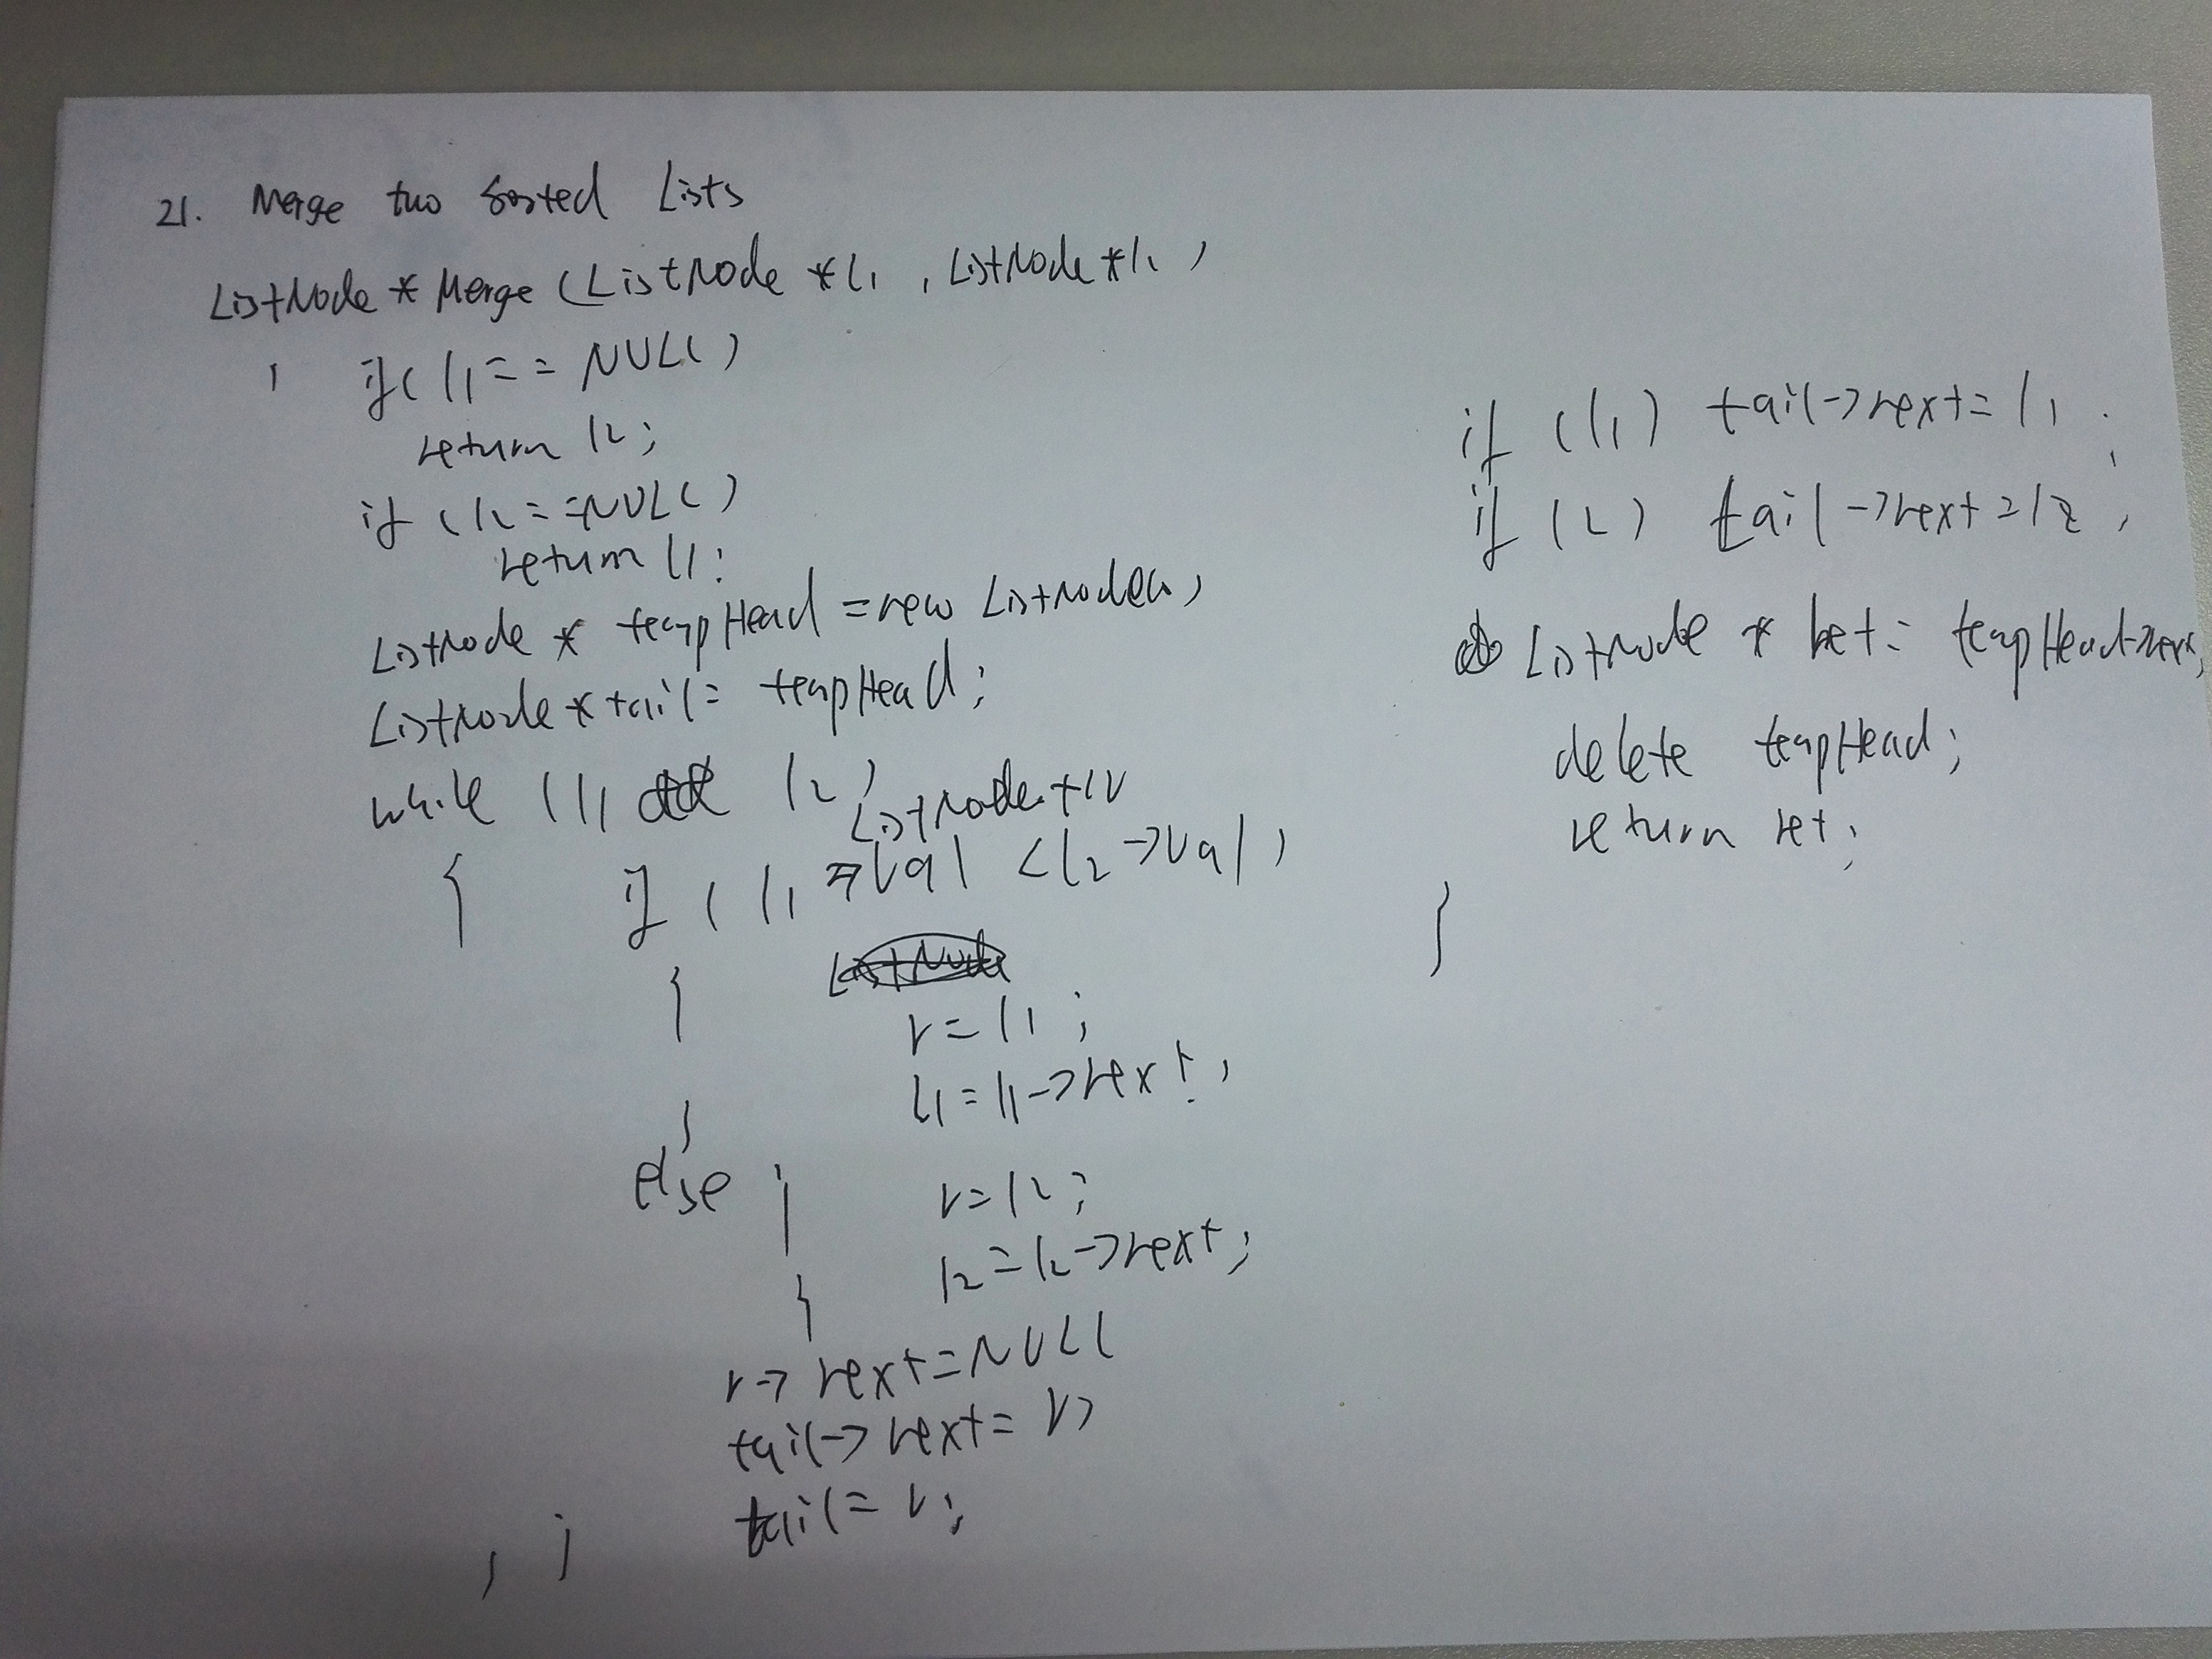 21. Merge two Sorted Lists
ListNode * Merge (ListNode *l1 , ListNode *l2 )
{ if( l1 == NULL )
return l2;
if ( l2 == NULL )
return l1;
ListNode * tempHead = new ListNode
ListNode * tail = tempHead;
while ( l1 && l2 )
ListNode *r;
{ if ( l1 ->val < l2 ->val )
{
r = l1 ;
l1 = l1 -> next ;
}
else {
r = l2 ;
l2 = l2 -> next ;
}
r -> next = NULL
tail -> next = r;
tail = r;
} }
if (l1) tail -> next = l1 ;
if (l2) tail -> next = l2 ;
ListNode * ret = tempHead->next;
delete tempHead;
return ret;
}